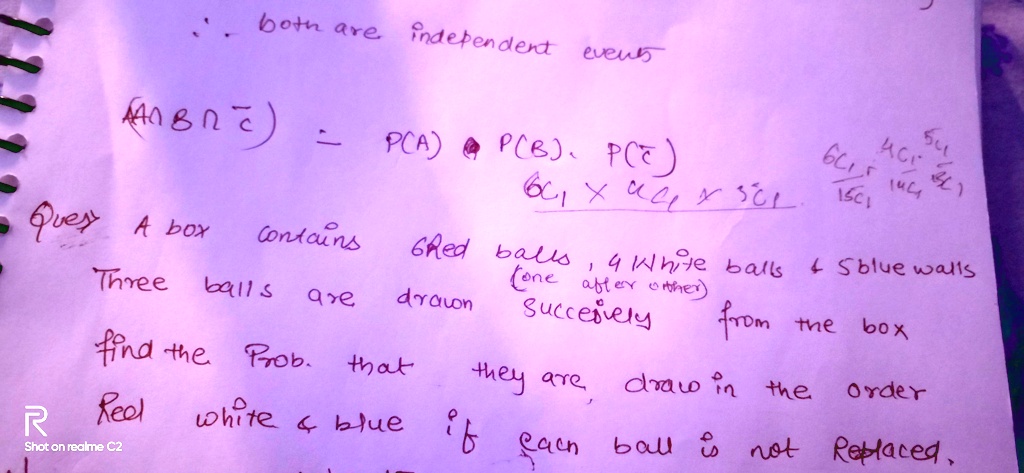 ∴ both are independent events
(A∩B∩C̄) = P(A) . P(B). P(C̄)
6C1 × 4C1 × 5C1
6C1/15C1 . 4C1/14C1 . 5C1/13C1
Ques A box contains 6Red balls, 4 White balls & 5blue walls
(one after other)
Three balls are drawn succesively from the box
find the Prob. that they are draw in the order
Red white & blue if each ball is not Replaced.
R
Shot on realme C2